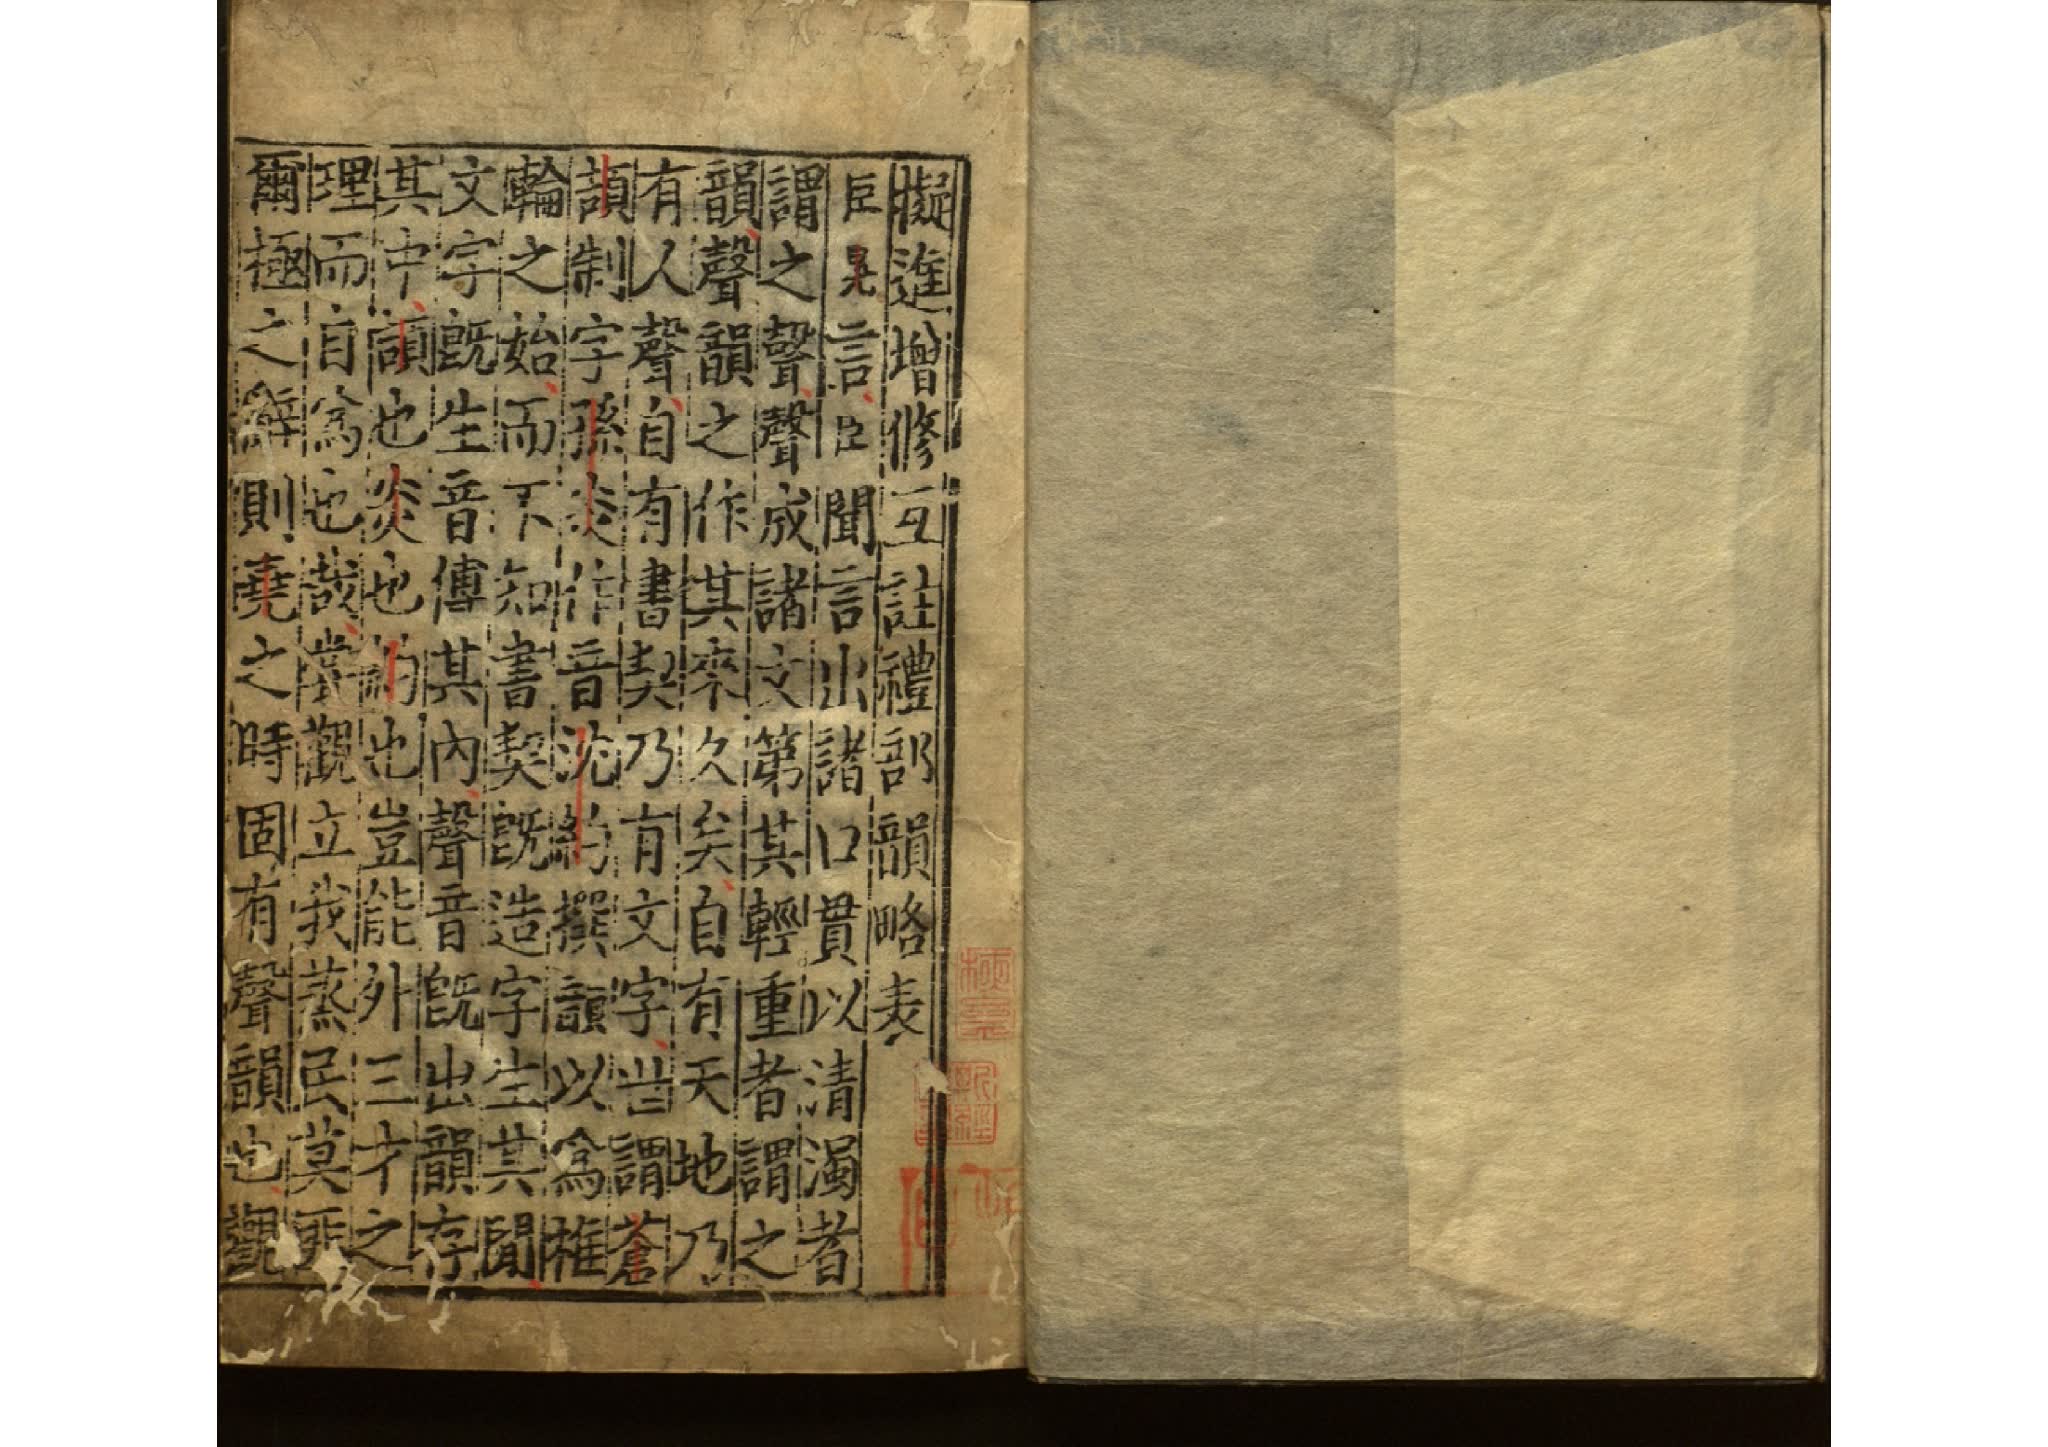 擬進增修互註禮部韻略表
臣晃言臣聞言出諸口貫以清濁者
謂之聲聲成諸文第其輕重者謂之
韻聲韻之作其來久矣自有天地乃
有人聲自有書契乃有文字世謂蒼
頡制字孫炎作音沈約撰韻以爲椎
輪之始而不知書契旣造字生其閒
文字旣生音傳其內聲音旣出韻存
其中頡也炎也約也豈能外三才之
理而自爲也哉嘗觀立我蒸民莫匪
爾極之辭則堯之時固有聲韻也觀